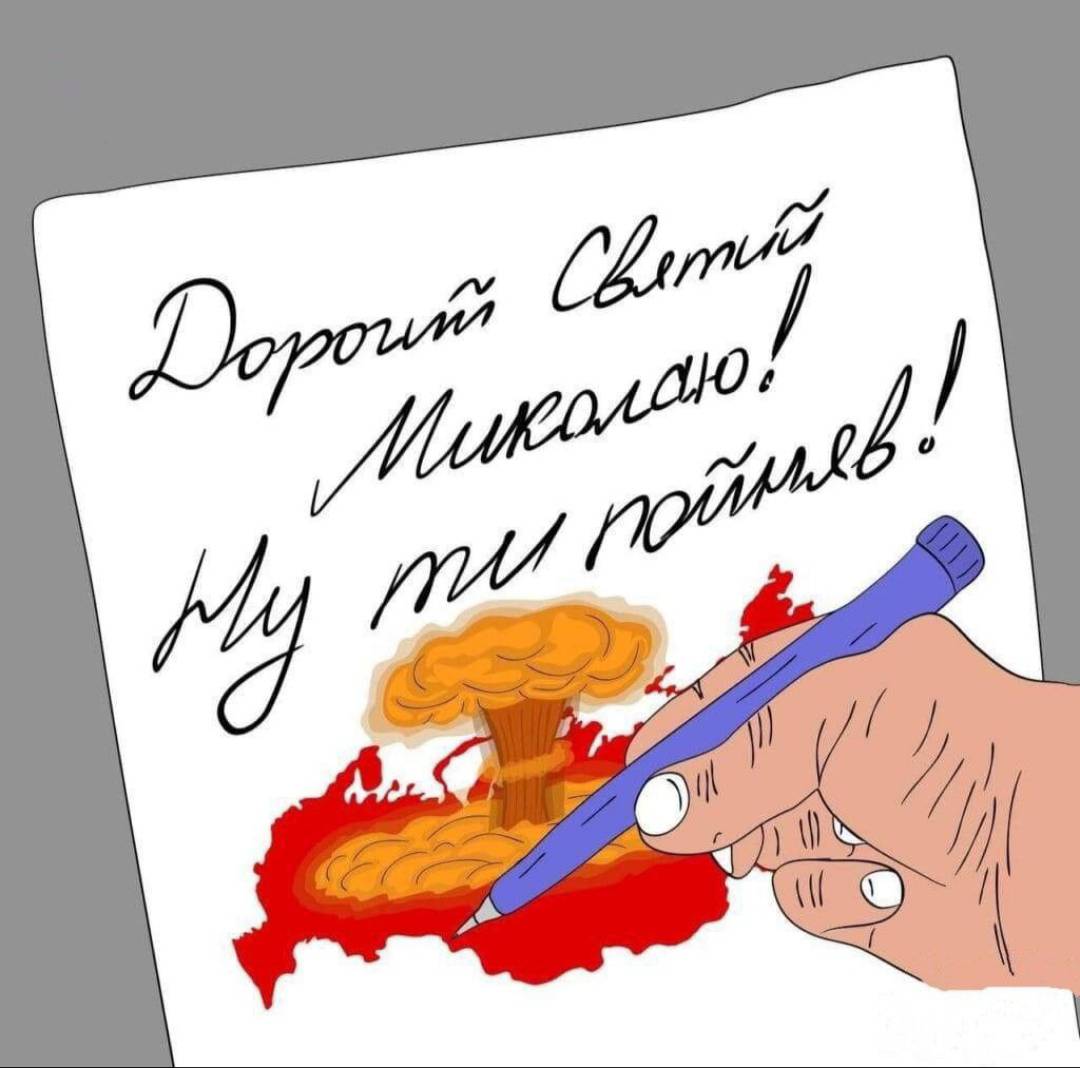 Дорогий Святий
Миколаю!
Ну ти пойняв!